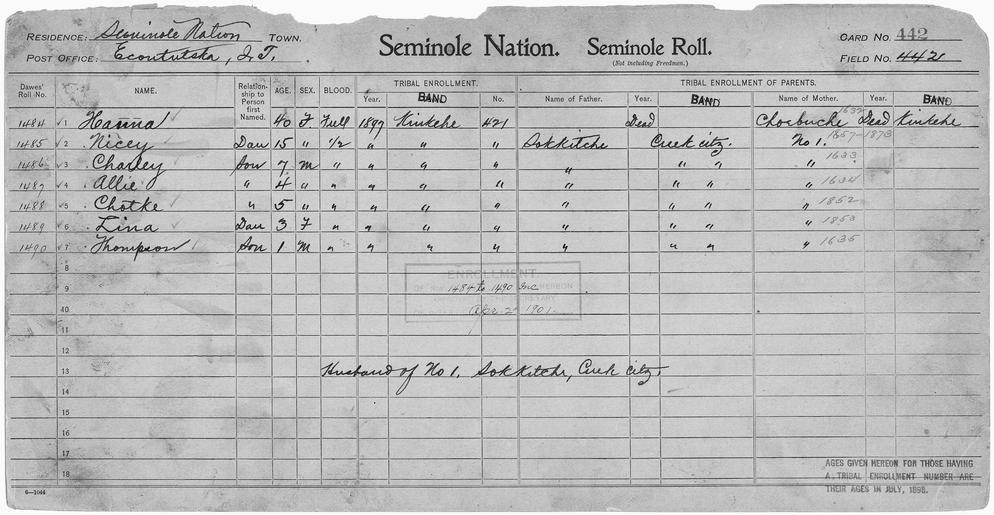 RESIDENCE: Seminole Nation TOWN.
POST OFFICE: Econtutska, I.T.
Seminole Nation. Seminole Roll.
(Not including Freedmen.)
CARD NO. 442
FIELD NO. 442
Dawes' Roll No. NAME. Relationship to Person first Named. AGE. SEX. BLOOD. TRIBAL ENROLLMENT. Year. BAND No. TRIBAL ENROLLMENT OF PARENTS. Name of Father. Year. BAND Name of Mother. Year. BAND
1484 √1 Hanna 40 F. Full 1897 Kinkehe 421 Dead Chosbuche 1632 Dead Kinkehe
1485 √2 Nicey Dau 15 " 1/2 " " " Sokkitche Creek citz. No 1. 1857-1873
1486 √3 Charley Son 7 M " " " " " " " " 1633
1487 √4 Allie " 4 " " " " " " " " " 1634
1488 √5 Chotke " 5 " " " " " " " " " 1852
1489 √6 Lina Dau 3 F " " " " " " " " 1853
1490 √7 Thompson Son 1 M " " " " " " " " 1635
8
ENROLLMENT
9 1484 to 1490 Inc
10 Apr 2 1901.
11
12
13 Husband of No 1. Sokkitche, Creek citz.
14
15
16
17
18
AGES GIVEN HEREON FOR THOSE HAVING
A TRIBAL ENROLLMENT NUMBER ARE
THEIR AGES IN JULY, 1898.
6—1044